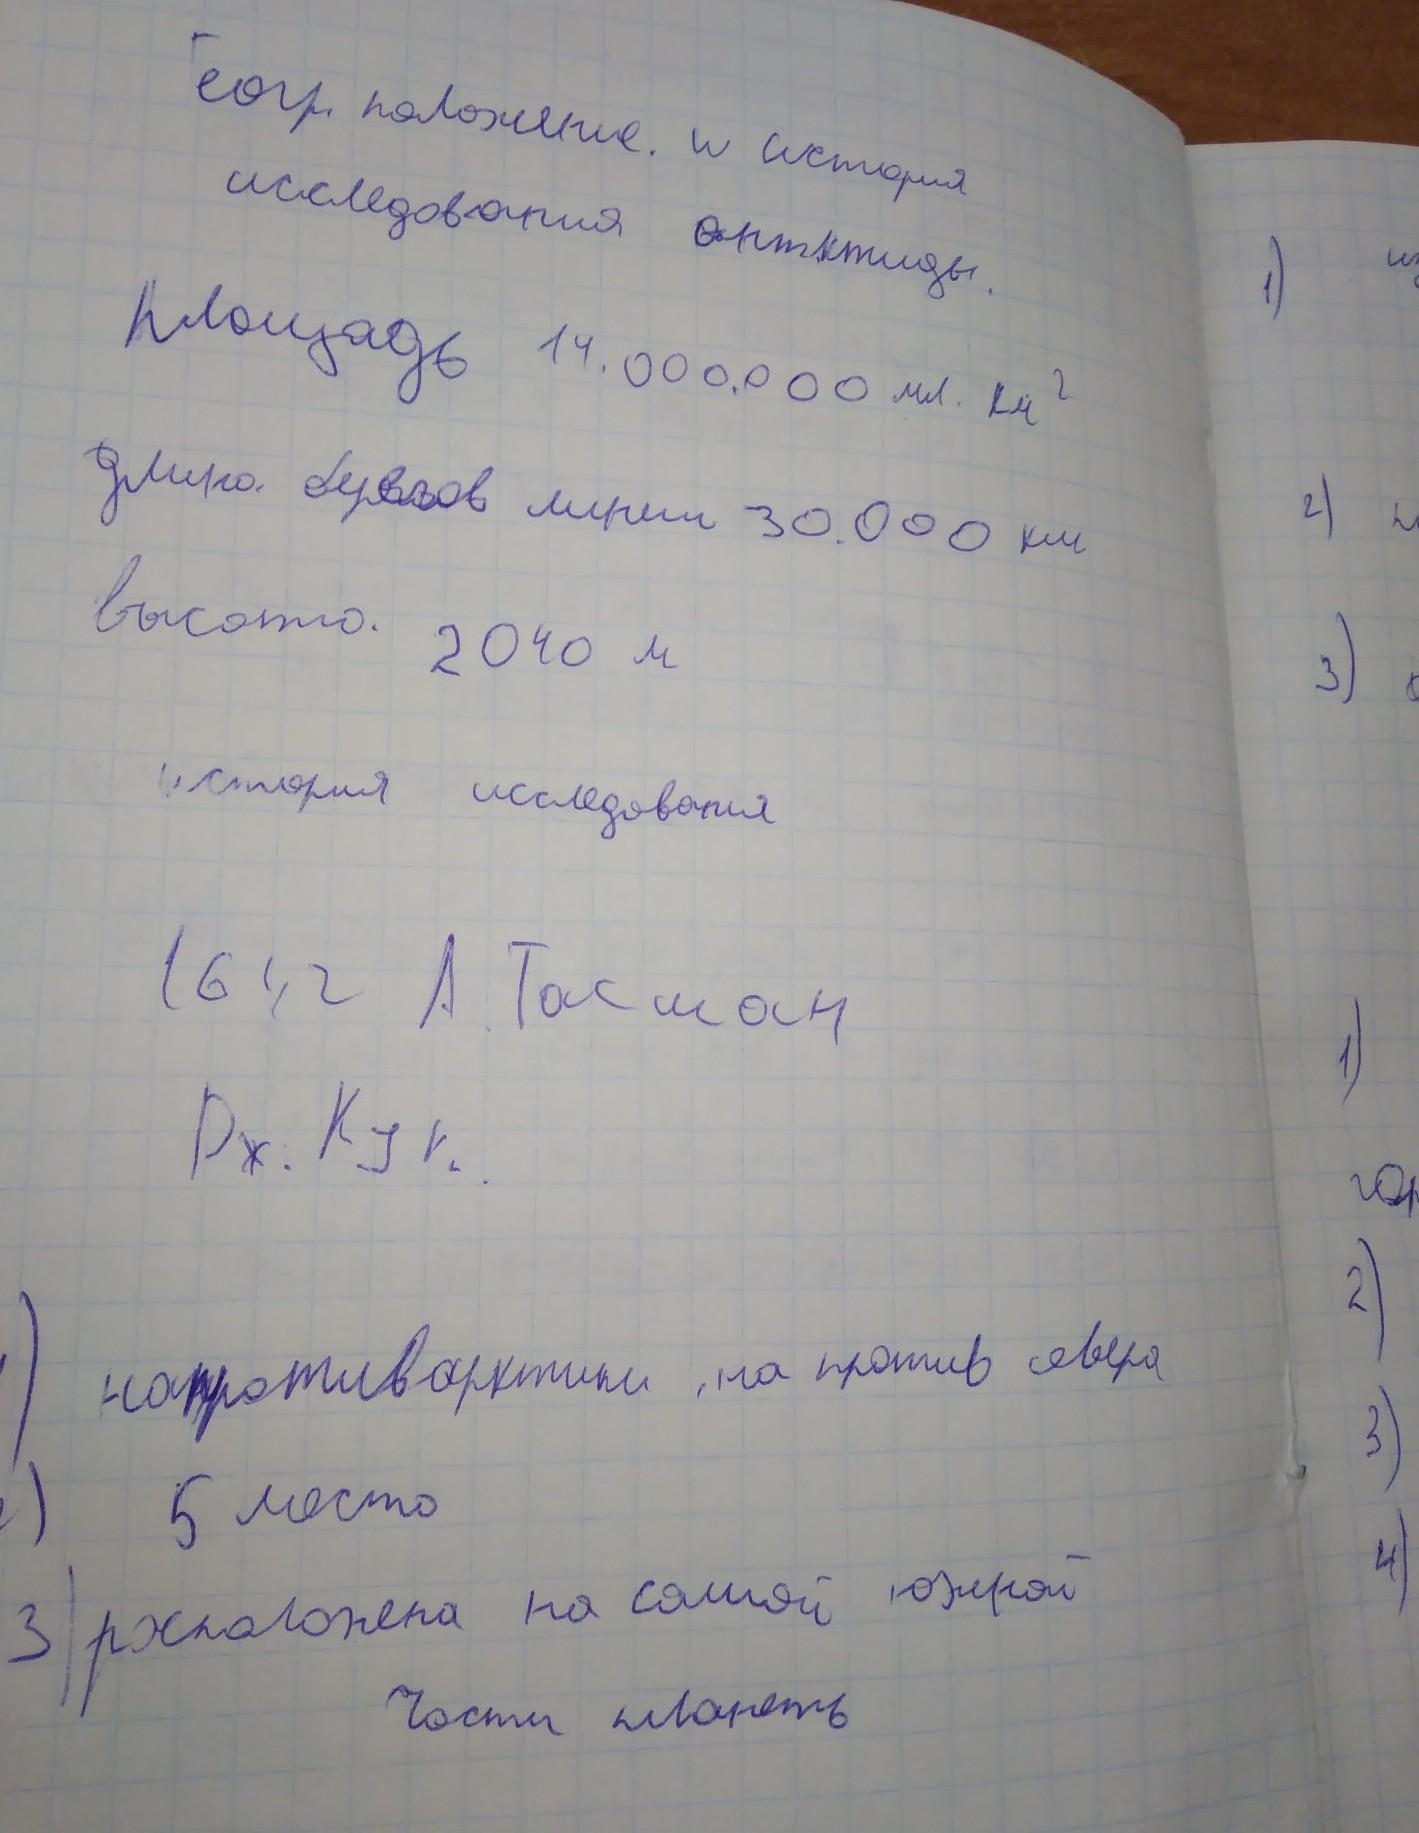 Геогр. положение. и история
исследования антктиды.
Площадь 14.000.000 мл. км²
длина. линии 30.000 км
высота. 2040 м
история исследования
1642 А. Тасман
Дж. Кук.
1) напротив арктики, на против севера
2) 5 место
3) рхположена на самой южной
части планеть
1)
2)
3)
1)
гор
2)
3)
4)